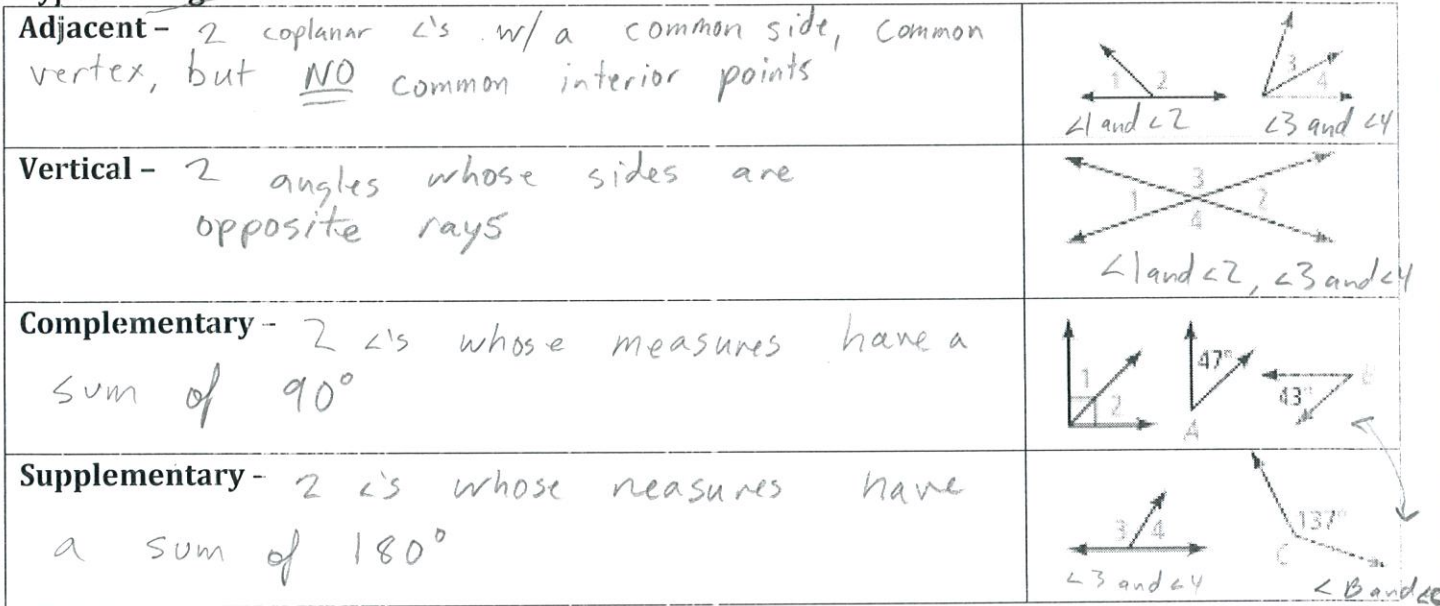 Adjacent – 2 coplanar ∠'s w/ a common side, common
vertex, but NO common interior points
1 2
3
4
∠1 and ∠2 ∠3 and ∠4
Vertical – 2 angles whose sides are
opposite rays
3
1 2
4
∠1 and ∠2, ∠3 and ∠4
Complementary - 2 ∠'s whose measures have a
sum of 90°
1
2
47°
A
43°
B
Supplementary - 2 ∠'s whose neasures have
a sum of 180°
3 4
137°
C
∠3 and ∠4
∠B and ∠C